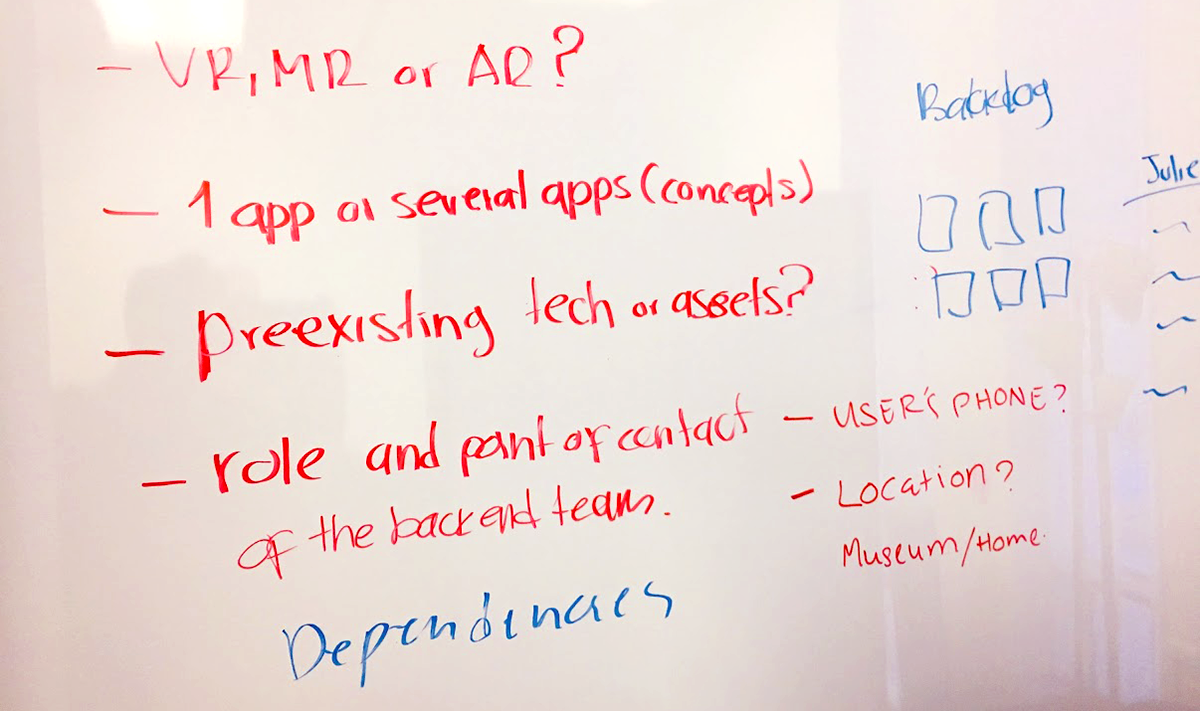 - VR, MR or AR?
- 1 app or several apps (concepts)
- preexisting tech or assets?
- role and point of contact
of the backend team.
Dependencies
- USER'S PHONE?
- LOCATION?
MUSEUM/HOME.
Backlog
Julie